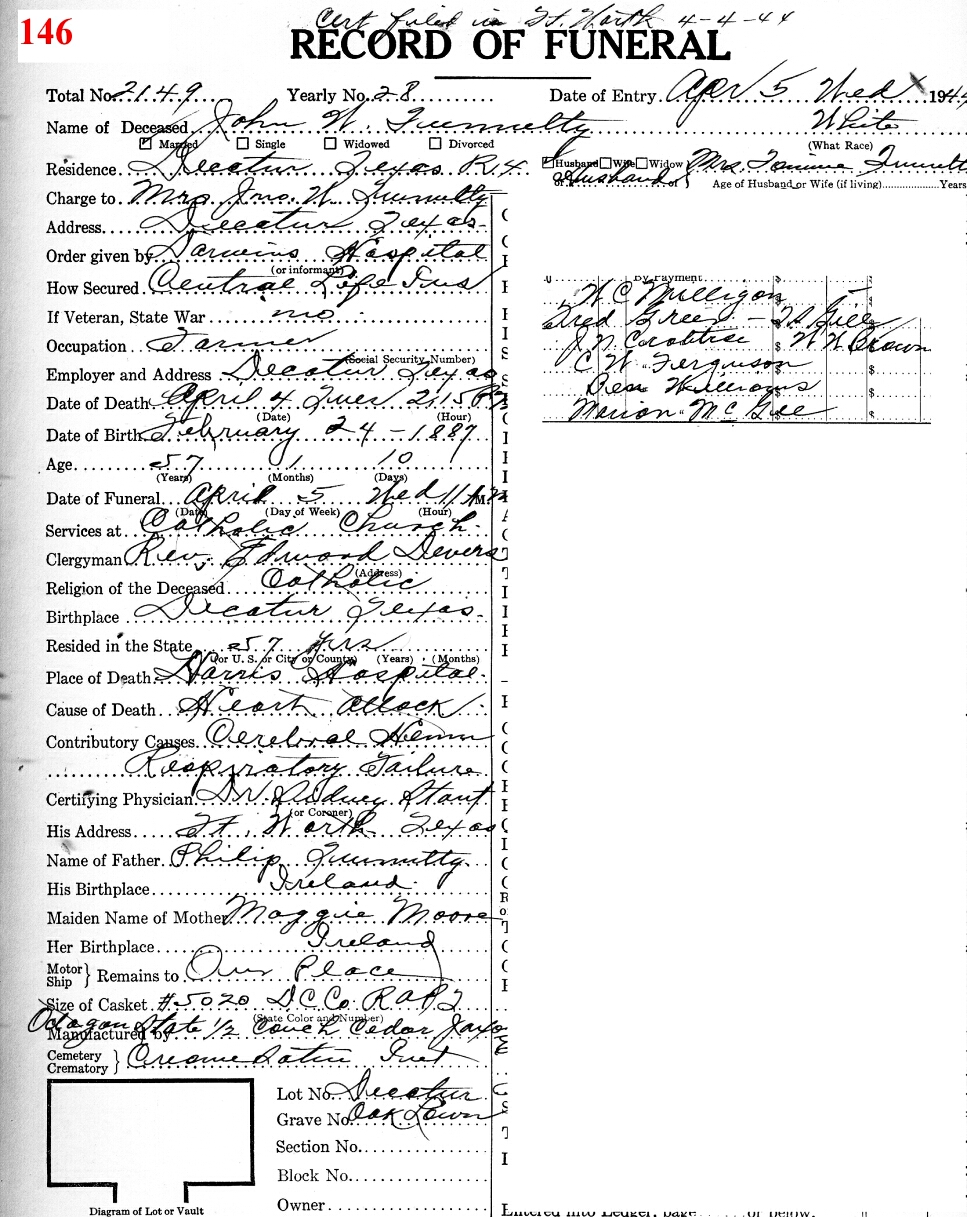 146
Cert filed in Ft. Worth 4-4-44
RECORD OF FUNERAL
Total No. 2149 Yearly No. 28 Date of Entry Apr 5 Wed 1944
Name of Deceased John W. White
Married Single Widowed Divorced (What Race)
Residence Decatur Texas R 4. Husband Wife Widow Mrs.
or Husband of Age of Husband or Wife (if living) Years
Charge to Mrs Jno. W.
Address Decatur Texas
Order given by Hospital
(or informant)
How Secured Central Life Ins
By Payment $
W C Milligan
If Veteran, State War no
Fred Green
Occupation Farmer
J N Crabtree W W Brown
(Social Security Number)
Employer and Address Decatur Texas
C W Ferguson
Ben Williams
Date of Death April 4 Tues 2:15 P
Marion McGee
(Date) (Hour)
Date of Birth February 24-1887
Age 57 1 10
(Years) (Months) (Days)
Date of Funeral April 5 Wed 11 AM
(Date) (Day of Week) (Hour)
Services at Catholic Church
Clergyman Rev. Edward Devers
(Address)
Religion of the Deceased Catholic
Birthplace Decatur Texas
Resided in the State 57 yrs
(or U. S. or City or County) (Years) (Months)
Place of Death Harris Hospital
Cause of Death Heart Attack
Contributory Causes Cerebral Hemm
Respiratory Failure
Certifying Physician Dr. Rodney
(or Coroner)
His Address Ft. Worth Texas
Name of Father Philip
His Birthplace Ireland
Maiden Name of Mother Maggie Moore
Her Birthplace Ireland
Motor Ship } Remains to Our Place
Size of Casket #5020 D C Co.
(State Color and Number)
Octagon State 1/2 Couch Cedar
Manufactured by
Cemetery Crematory } Creame Satin
Lot No. Decatur
Grave No. Oak Lawn
Section No.
Block No.
Owner
Diagram of Lot or Vault
Entered into Ledger, page or below.